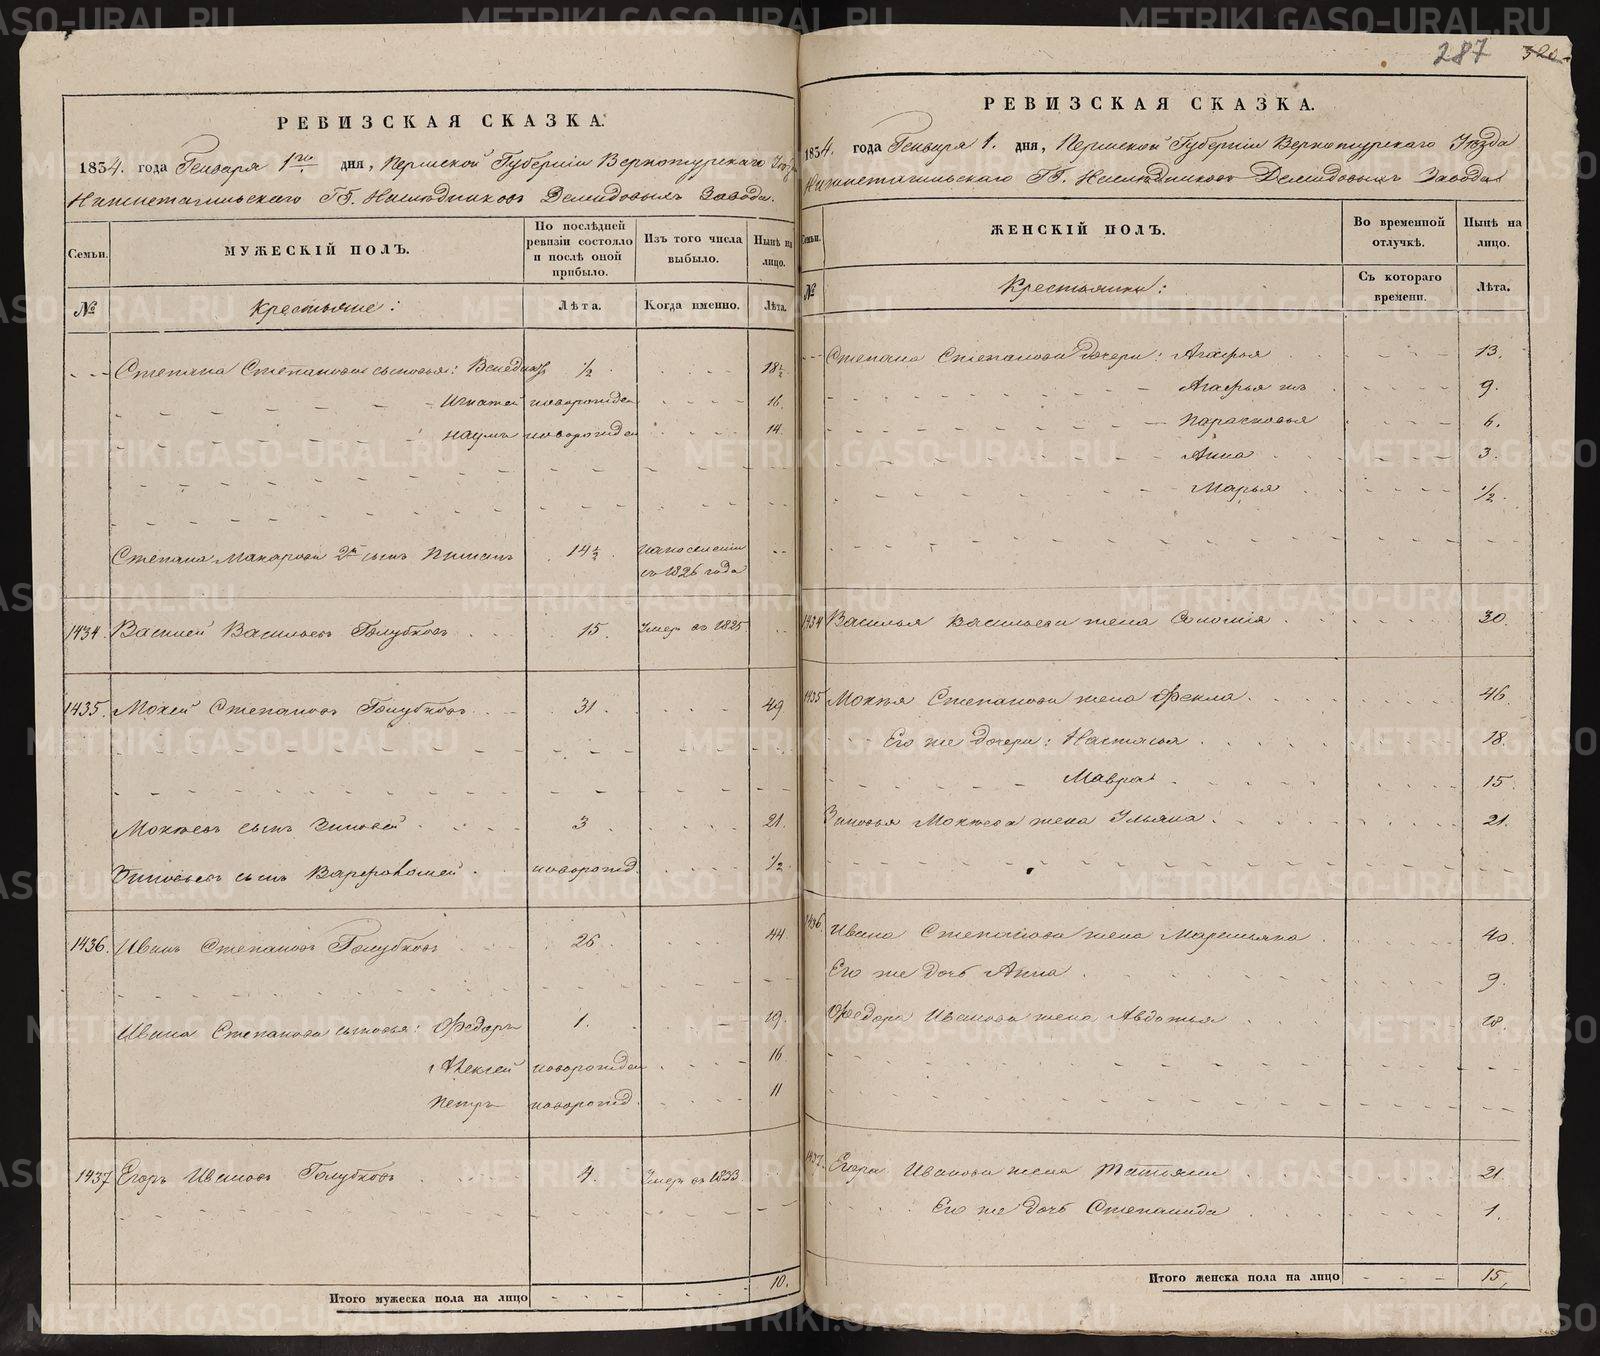 287 320
РЕВИЗСКАЯ СКАЗКА.
1834. года Генваря 1го дня, Пермской Губерніи Верхотурскаго Уѣзда
Нижнетагильскаго ГГ. Наслѣдниковъ Демидовыхъ Завода.
Семьи. МУЖЕСКІЙ ПОЛЪ. По послѣдней ревизіи состояло и послѣ оной прибыло. Изъ того числа выбыло. Нынѣ на лицо.
№ Крестьяне: Лѣта. Когда именно. Лѣта.
Степана Степанова сыновья: Венедикъ 1/2 18 1/2
Игнатей новорожден 16.
Наумъ новорожден 14.
Степана Макарова 2й сынъ 14 1/2 на поселеніи
съ 1826 года
1434. Василей Васильевъ Голубковъ 15. Умер въ 1825
1435. Мокей Степановъ Голубковъ 31. 49
Мокѣевъ сынъ Зиновей 3 21.
Зиновьевъ сынъ Варфоломей новорожд. 1/2
1436. Иванъ Степановъ Голубковъ 26. 44
Ивана Степанова сыновья: Федоръ 1. 19.
Алексей новорожден 16
Петръ новорожд. 11
1437 Егоръ Ивановъ Голубковъ 4. Умер въ 1833
Итого мужеска пола на лицо 10.
РЕВИЗСКАЯ СКАЗКА.
1834. года Генваря 1. дня, Пермской Губерніи Верхотурскаго Уѣзда
Нижнетагильскаго ГГ. Наслѣдниковъ Демидовыхъ Завода
Семьи. ЖЕНСКІЙ ПОЛЪ. Во временной отлучкѣ. Нынѣ на лицо.
№ Крестьянки: Съ котораго времени. Лѣта.
Степана Степанова дочери: Агафья 13.
Агафья 9.
Парасковья 6.
Анна 3.
Марья 1/2
1434 Василья Васильева жена 30.
1435 Мокѣя Степанова жена Фекла 46
Его же дочери: Настасья 18.
Мавра 15
Зиновья Мокѣева жена Ульяна 21.
1436. Ивана Степанова жена Маремьяна 40.
Его же дочь Анна 9.
Федора Иванова жена Авдотья 18.
1437. Егора Иванова жена Татьяна 21
Его же дочь Степанида 1.
Итого женска пола на лицо 15,
METRIKI.GASO-URAL.RU